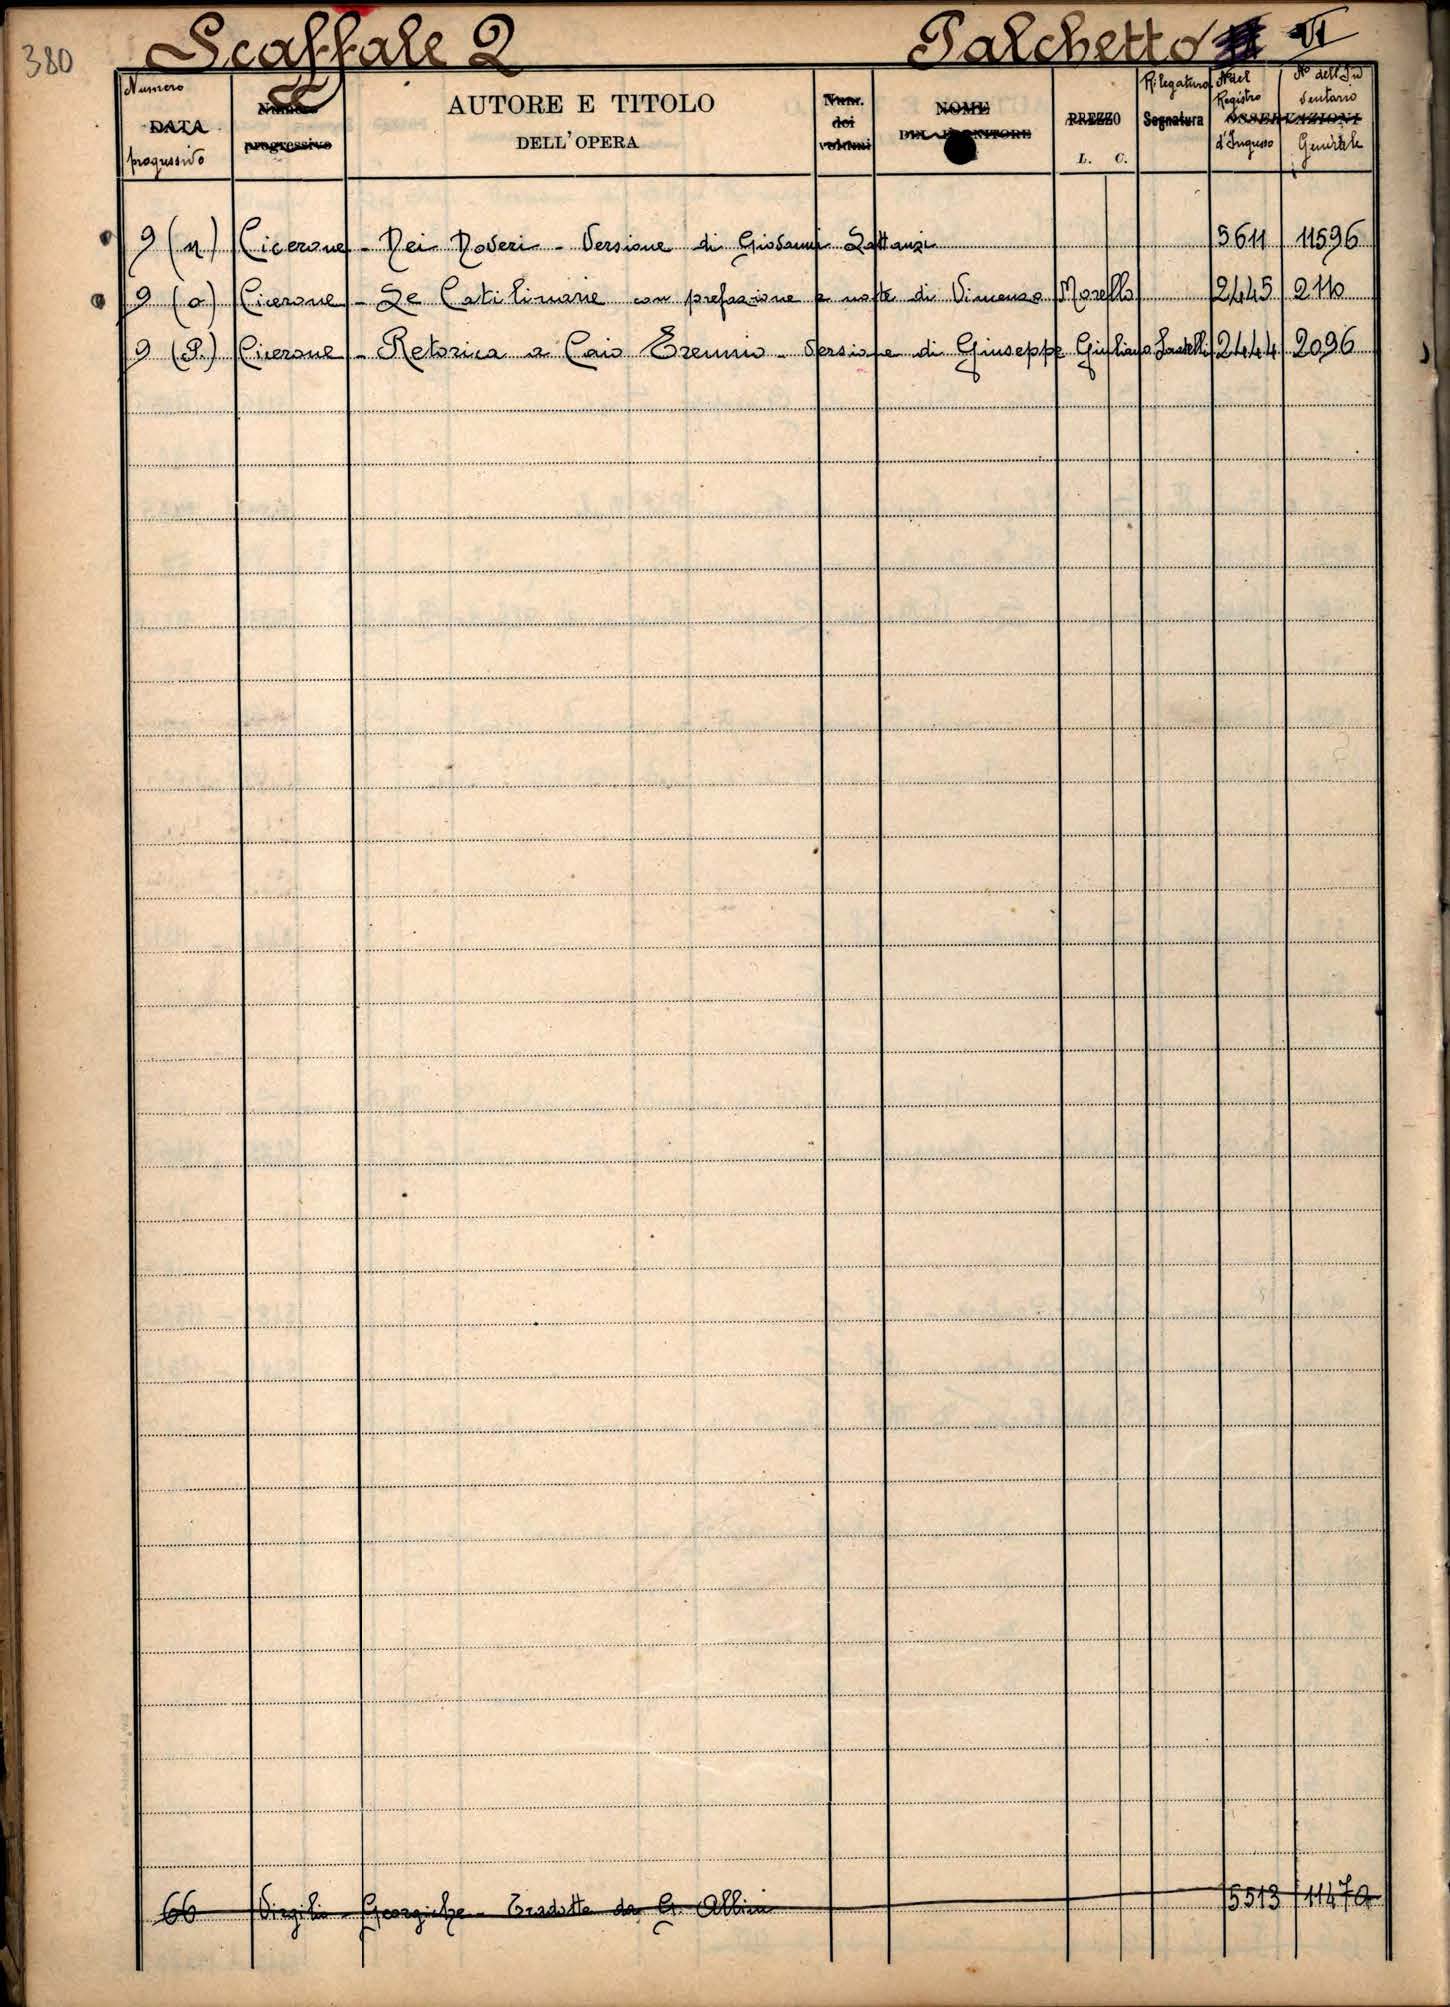 380
Scaffale 2 Palchetto VI
Numero DATA progressivo
Numero progressivo
AUTORE E TITOLO DELL'OPERA
Num. dei volumi
NOME DEL FORNITORE
PREZZO L. C.
Rilegatura Segnatura
N° del Registro d'Ingresso
OSSERVAZIONI
N° dell'Inventario Generale
9 (n) Cicerone - Dei Doveri - Versione di Giovanni Lattanzi 5611 11596
9 (o) Cicerone - Le Catilinarie con prefazione e note di Vincenzo Morello 2445 2110
9 (P.) Cicerone - Retorica a Caio Erennio - Versione di Giuseppe Giuliano 2444 2096
66 Virgilio - Georgiche - Tradotte da G. Albini 5513 11470